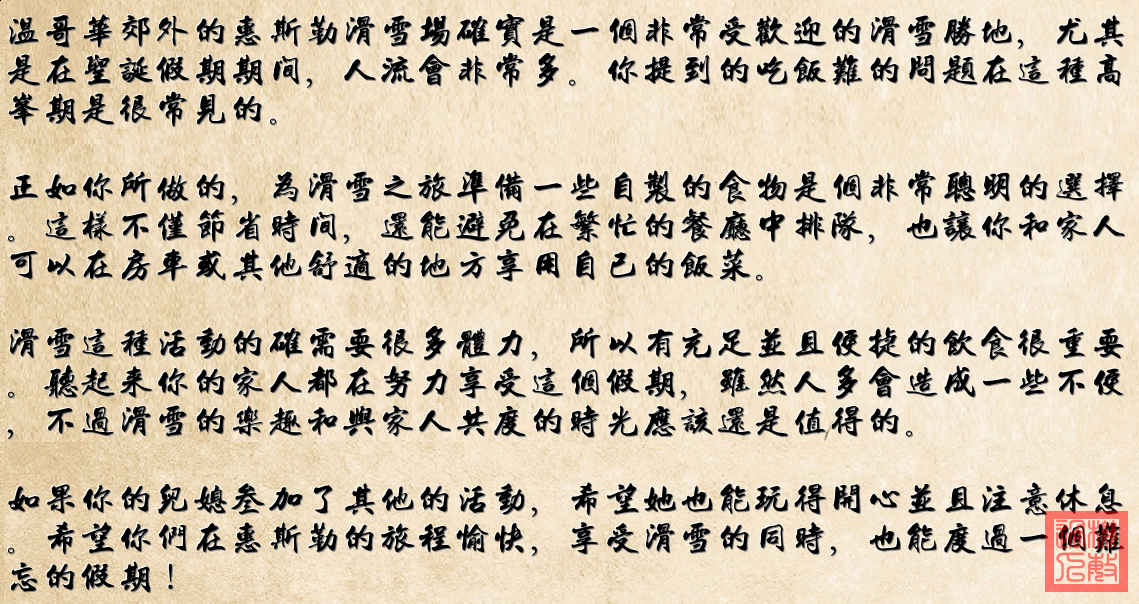 溫哥華郊外的惠斯勒滑雪場確實是一個非常受歡迎的滑雪勝地，尤其
是在聖誕假期期间，人流會非常多。你提到的吃飯難的問題在這種高
峯期是很常見的。
正如你所做的，為滑雪之旅準備一些自製的食物是個非常聰明的選擇
。這樣不僅節省時间，還能避免在繁忙的餐廳中排隊，也讓你和家人
可以在房車或其他舒適的地方享用自己的飯菜。
滑雪這種活動的確需要很多體力，所以有充足並且便捷的飲食很重要
。聽起來你的家人都在努力享受這個假期，雖然人多會造成一些不便
，不過滑雪的樂趣和與家人共度的時光應該還是值得的。
如果你的兒媳叄加了其他的活動，希望她也能玩得開心並且注意休息
。希望你們在惠斯勒的旅程愉快，享受滑雪的同時，也能度過一個難
忘的假期！